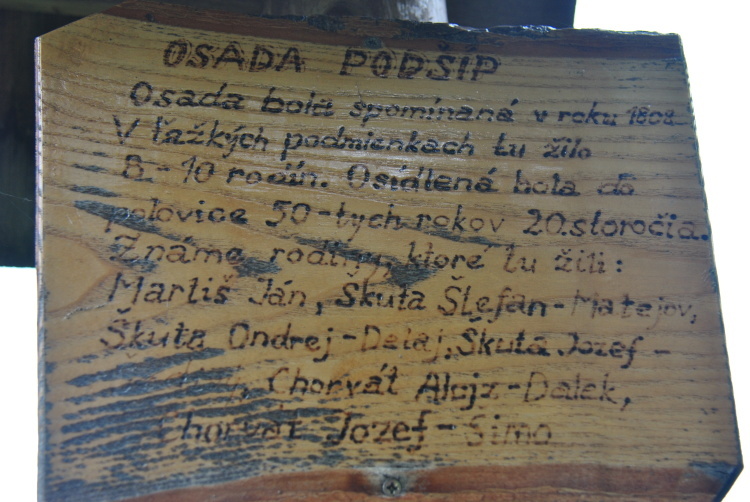 OSADA PODŠÍP
Osada bola spomínaná v roku 1808
V ťažkých podmienkach tu žilo
8-10 rodín. Osídlená bola do
polovice 50-tych rokov 20.storočia.
Známe rodiny, ktoré tu žili:
Martiš Ján, Skuta Štefan-Matejov,
Škuta Ondrej-Delaj, Skuta Jozef-
Chorvát Alojz-Dalek,
Chorvát Jozef-Simo